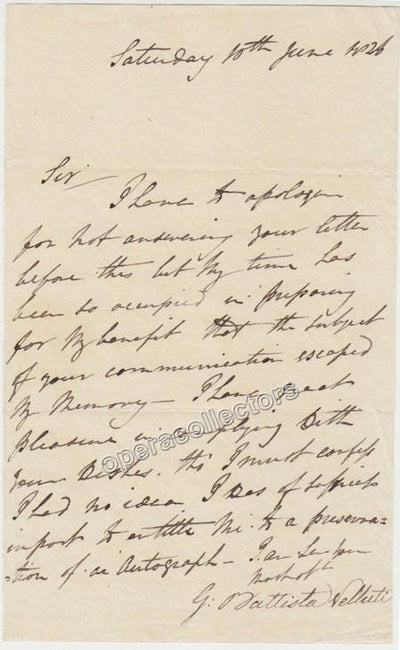 Saturday 10th June 1826
Sir
I have to apologise
for not answering your letter
before this but my time has
been so occupied in preparing
for my benefit that the subject
of your communication escaped
my Memory — I have great
pleasure in complying with
your wishes. tho' I must confess
I had no idea I was of sufficient
import to entitle me to a preserva-
-tion of an Autograph — I am Sir your
G: Battista Velluti
operacollectors